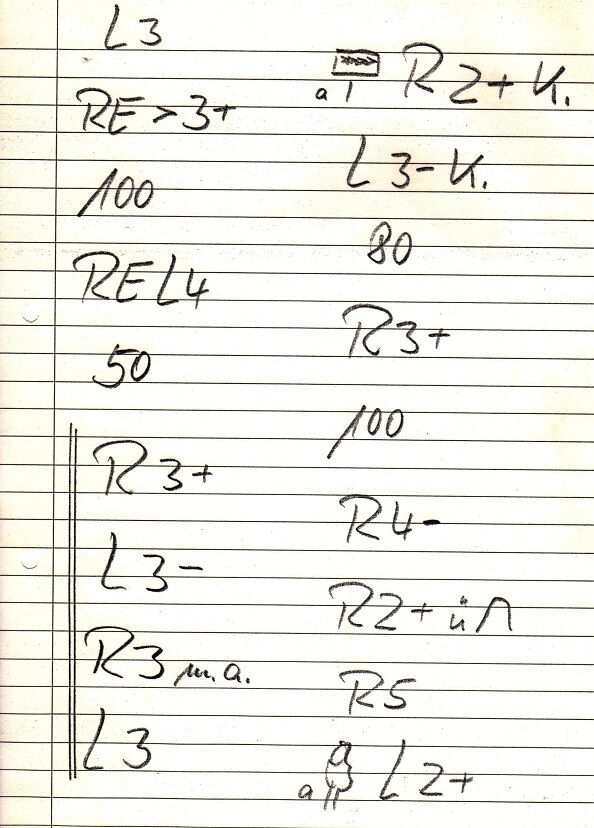 L3
RE > 3+
100
REL4
50
R3+
L3-
R3 m.a.
L3
a R2+ K.
L3- K.
80
R3+
100
R4-
R2+ ü
R5
a L2+